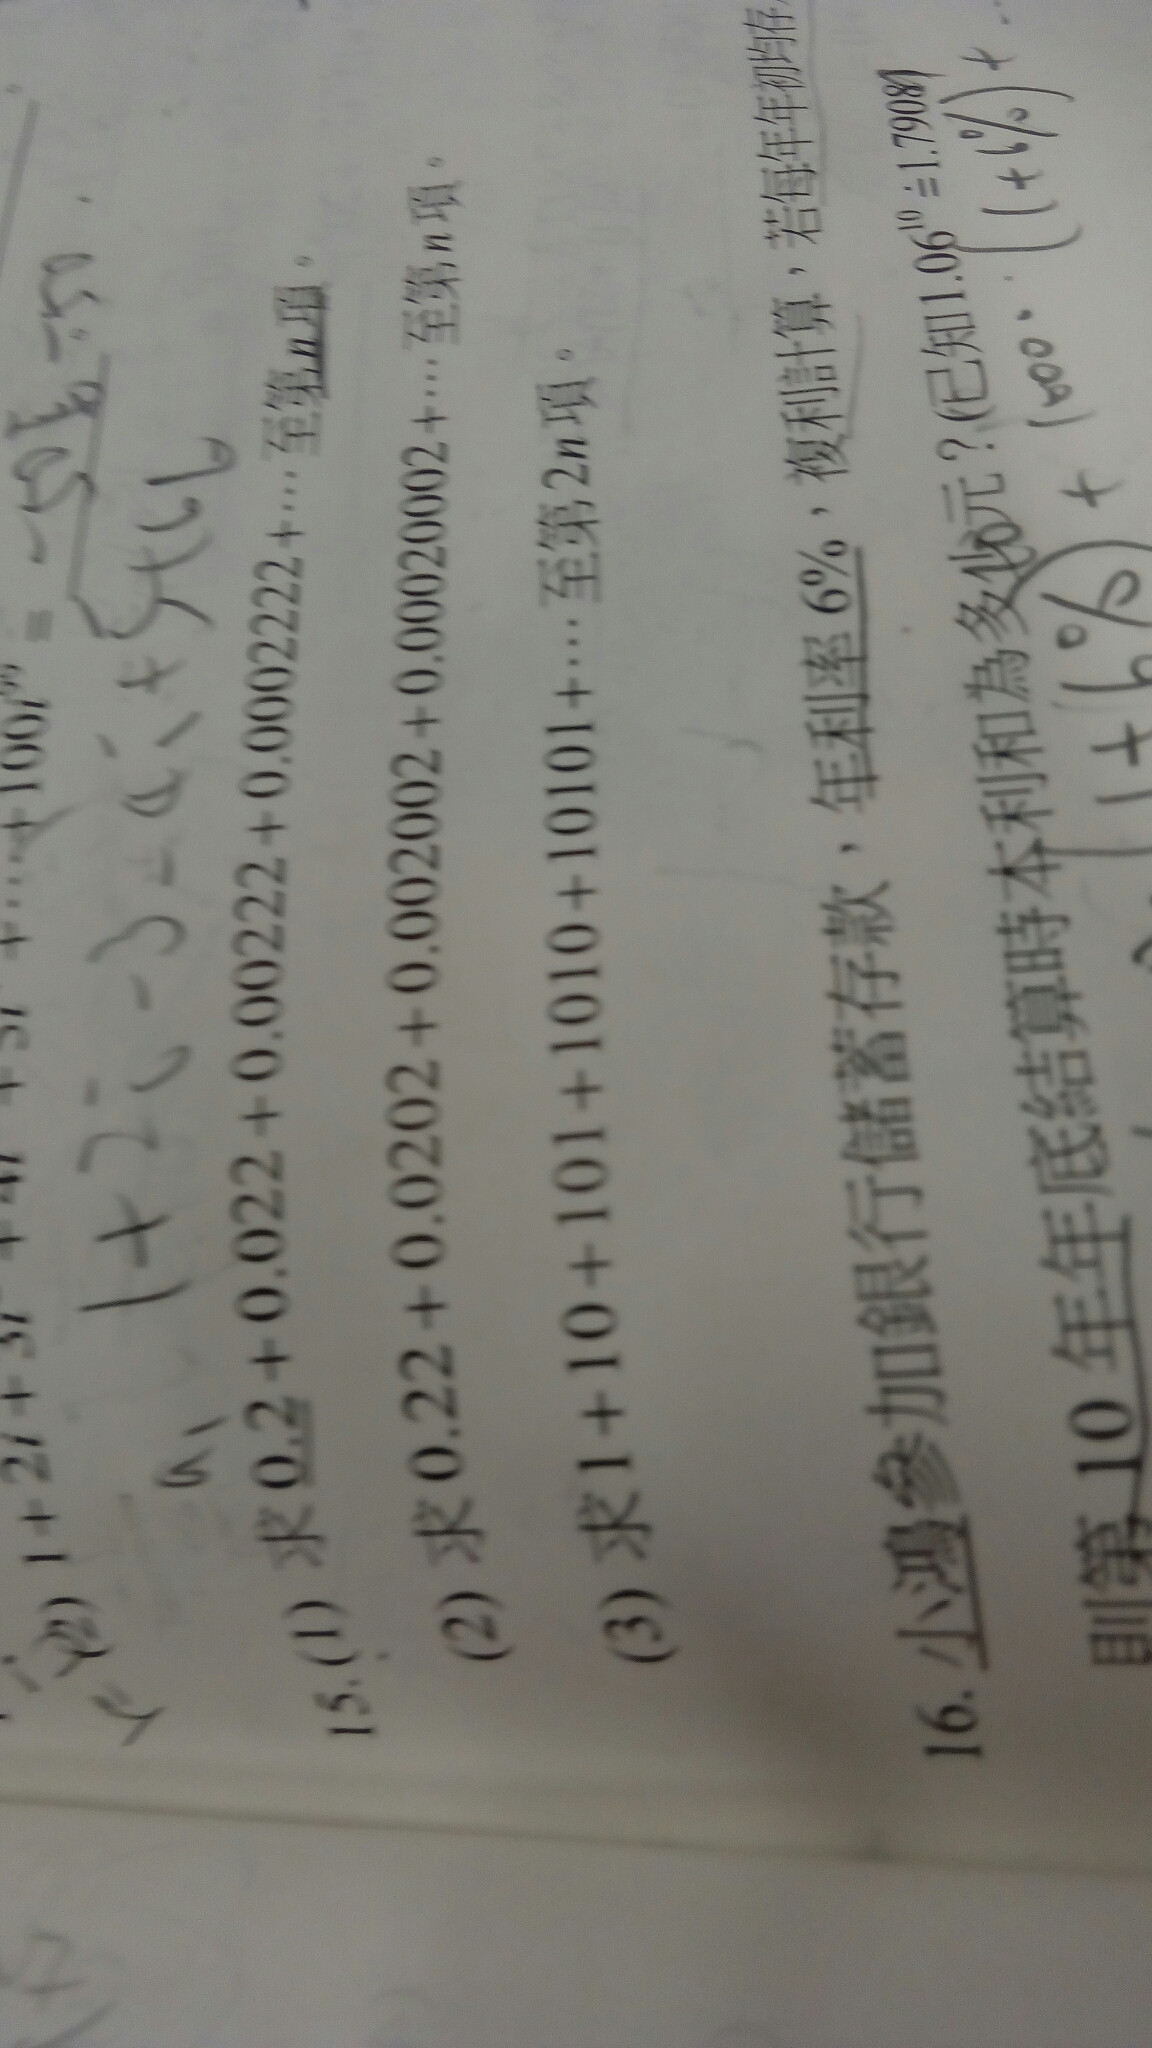 (2) 1+2i+3i²+4i³+5i⁴+…+100i⁹⁹ = -50
1+2i-3-4i+5+6i
a₁
15.(1) 求0.2+0.022+0.00222+0.0002222+…至第n項。
(2) 求0.22+0.0202+0.002002+0.00020002+…至第n項。
(3) 求1+10+101+1010+10101+…至第2n項。
16. 小鴻參加銀行儲蓄存款，年利率6%，複利計算，若每年年初均存
則第10年年底結算時本利和為多少元？(已知1.06¹⁰≒1.7908)
(1+6%) + 1000·(1+6%) + …